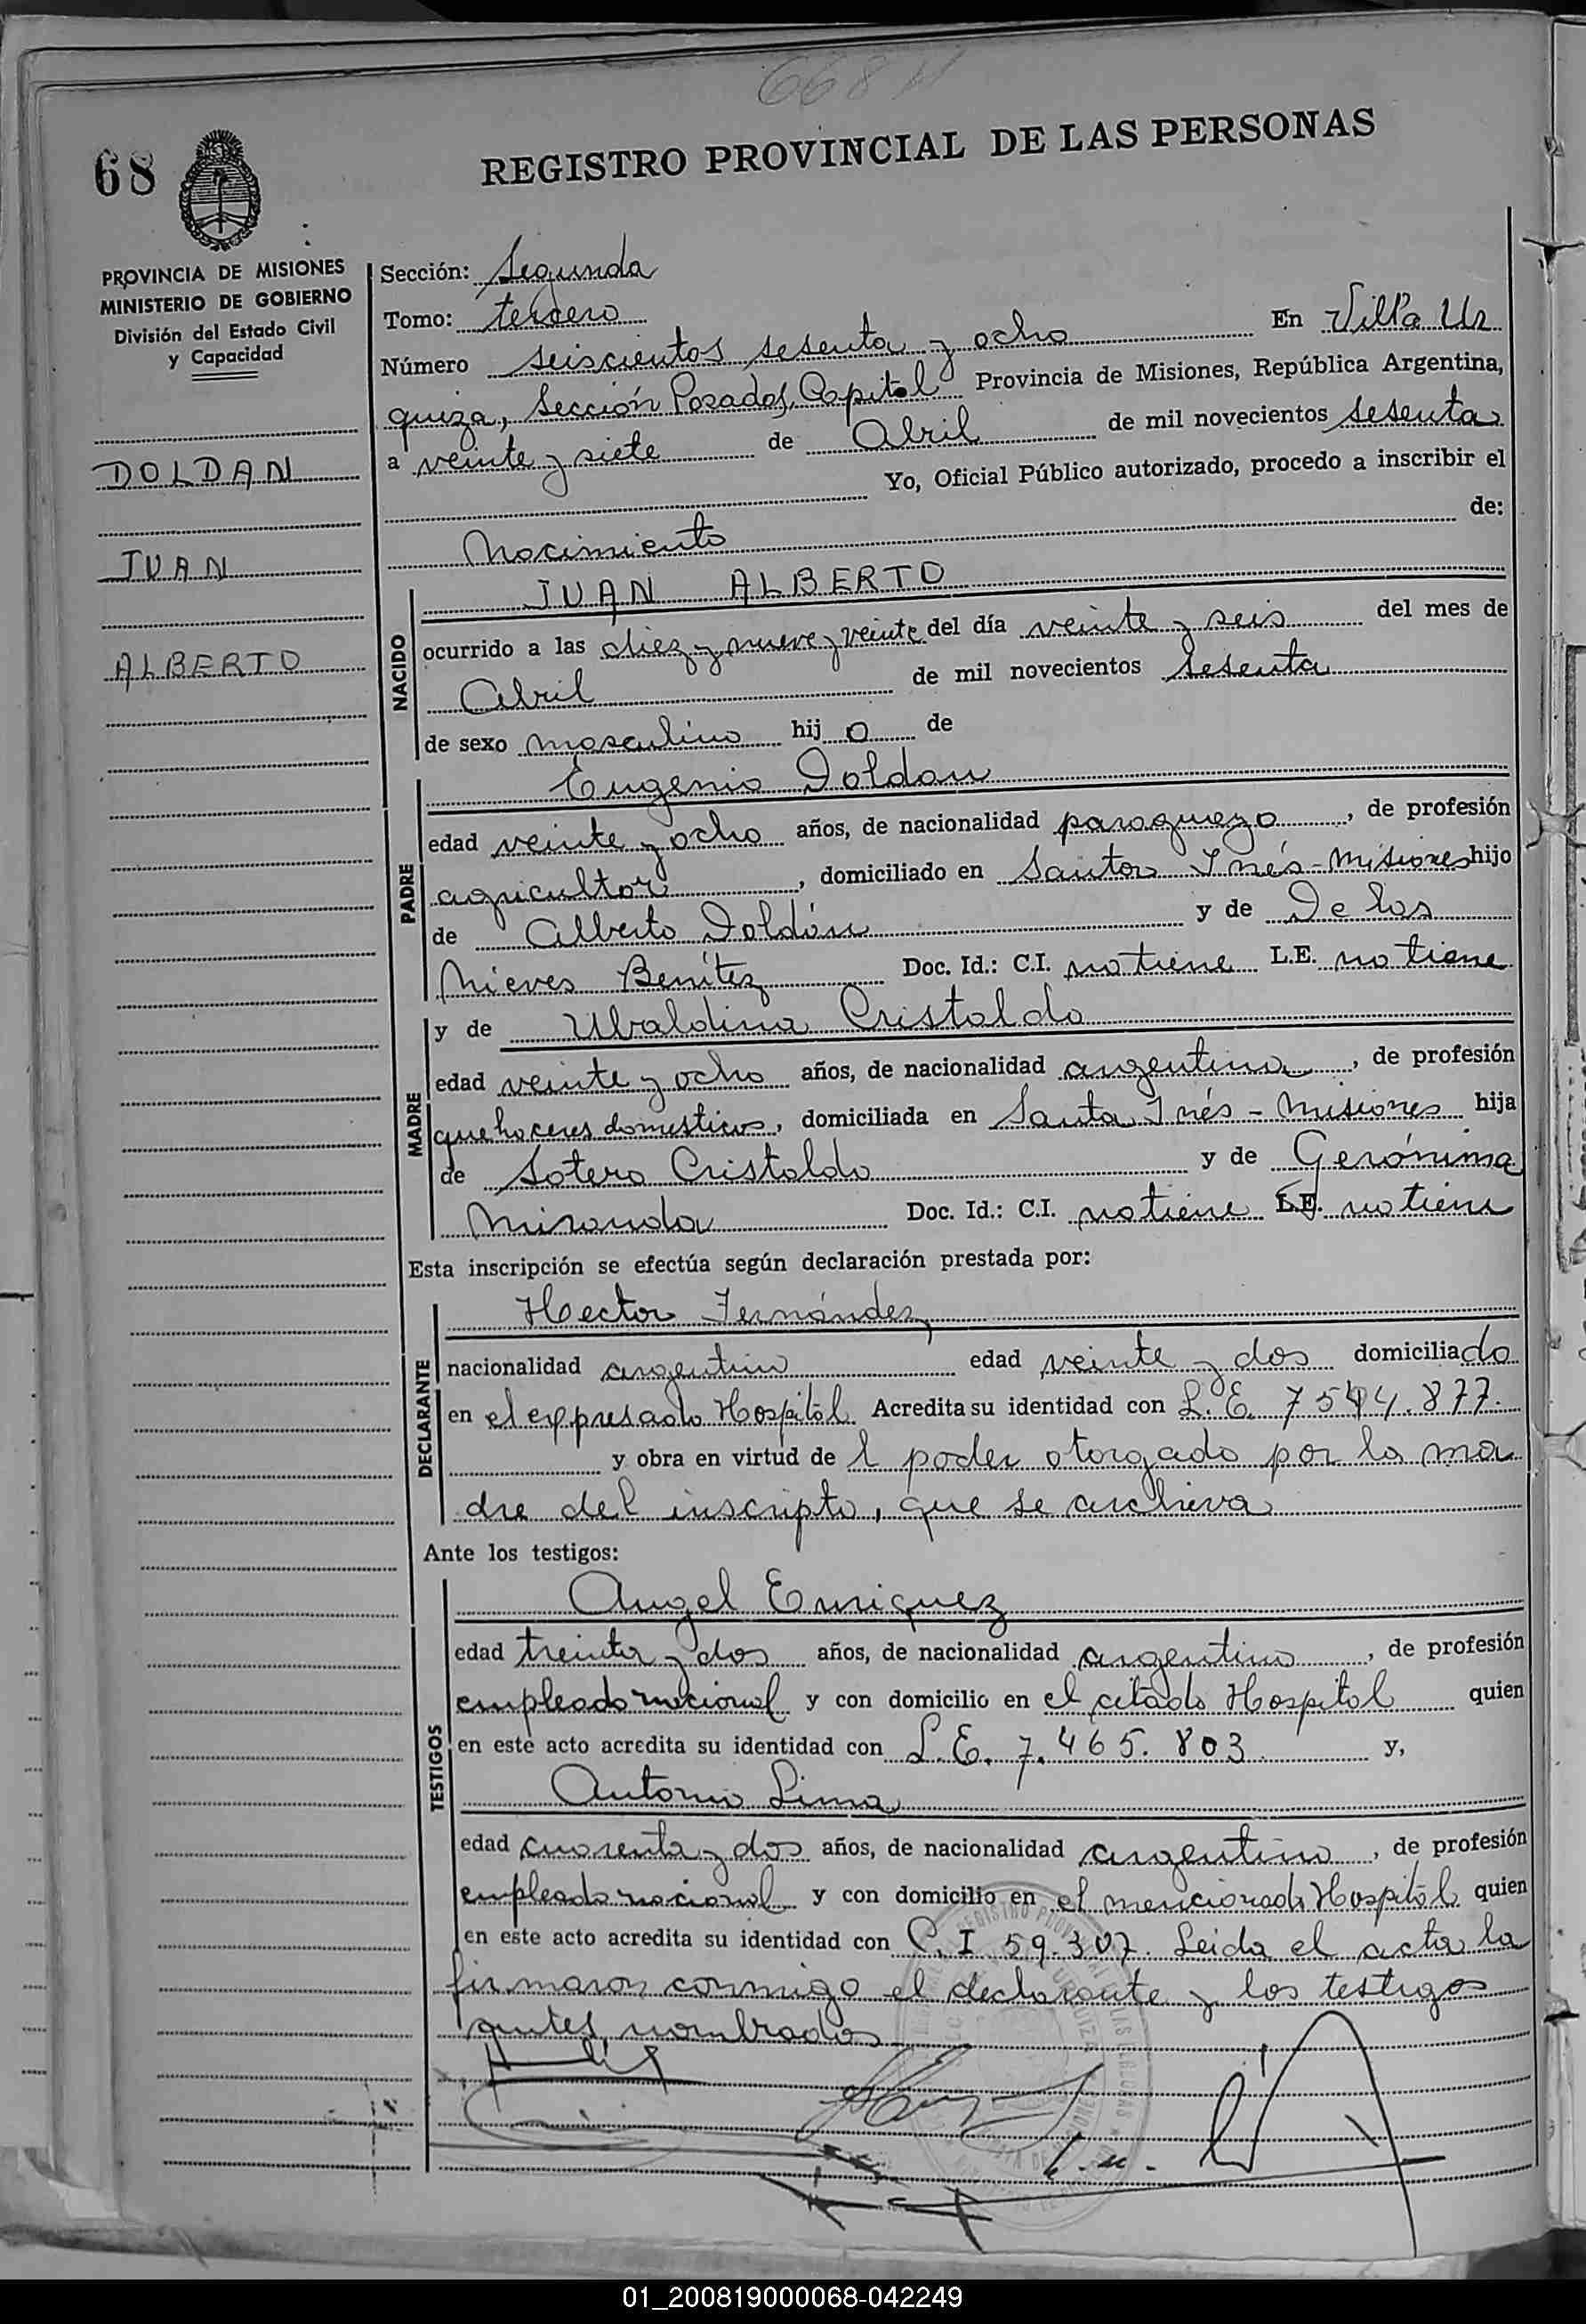 668 N
68
REGISTRO PROVINCIAL DE LAS PERSONAS
PROVINCIA DE MISIONES
MINISTERIO DE GOBIERNO
División del Estado Civil
y Capacidad
DOLDAN
JUAN
ALBERTO
Sección: Segunda
Tomo: tercero
Número seiscientos sesenta y ocho En Villa Ur
quiza, Sección Posadas, Capital Provincia de Misiones, República Argentina,
a veinte y siete de Abril de mil novecientos sesenta
Yo, Oficial Público autorizado, procedo a inscribir el
Nacimiento de:
NACIDO
JUAN ALBERTO
ocurrido a las diez y nueve y veinte del día veinte y seis del mes de
Abril de mil novecientos sesenta
de sexo masculino hij o de
PADRE
Eugenio Doldan
edad veinte y ocho años, de nacionalidad paraguayo, de profesión
agricultor, domiciliado en Santa Inés - Misiones hijo
de Alberto Doldán y de De las
Nieves Benítez Doc. Id.: C.I. no tiene L.E. no tiene
MADRE
y de Ubaldina Cristaldo
edad veinte y ocho años, de nacionalidad argentina, de profesión
quehaceres domesticos, domiciliada en Santa Inés - Misiones hija
de Sotero Cristaldo y de Gerónima
Miranda Doc. Id.: C.I. no tiene L.E. no tiene
Esta inscripción se efectúa según declaración prestada por:
DECLARANTE
Hector Fernández
nacionalidad argentino edad veinte y dos domiciliado
en el expresado Hospital Acredita su identidad con L.E. 7544.877.
y obra en virtud de l poder otorgado por la ma
dre del inscripto, que se archiva
Ante los testigos:
TESTIGOS
Angel Enriquez
edad treinta y dos años, de nacionalidad argentino, de profesión
empleado nacional y con domicilio en el citado Hospital quien
en este acto acredita su identidad con L.E. 7.465.803 y,
Antonio Lima
edad cuarenta y dos años, de nacionalidad argentino, de profesión
empleado nacional y con domicilio en el mencionado Hospital quien
en este acto acredita su identidad con C.I 59.307. Leida el acta la
firmaron conmigo el declarante y los testigos
antes nombrados
01_200819000068-042249